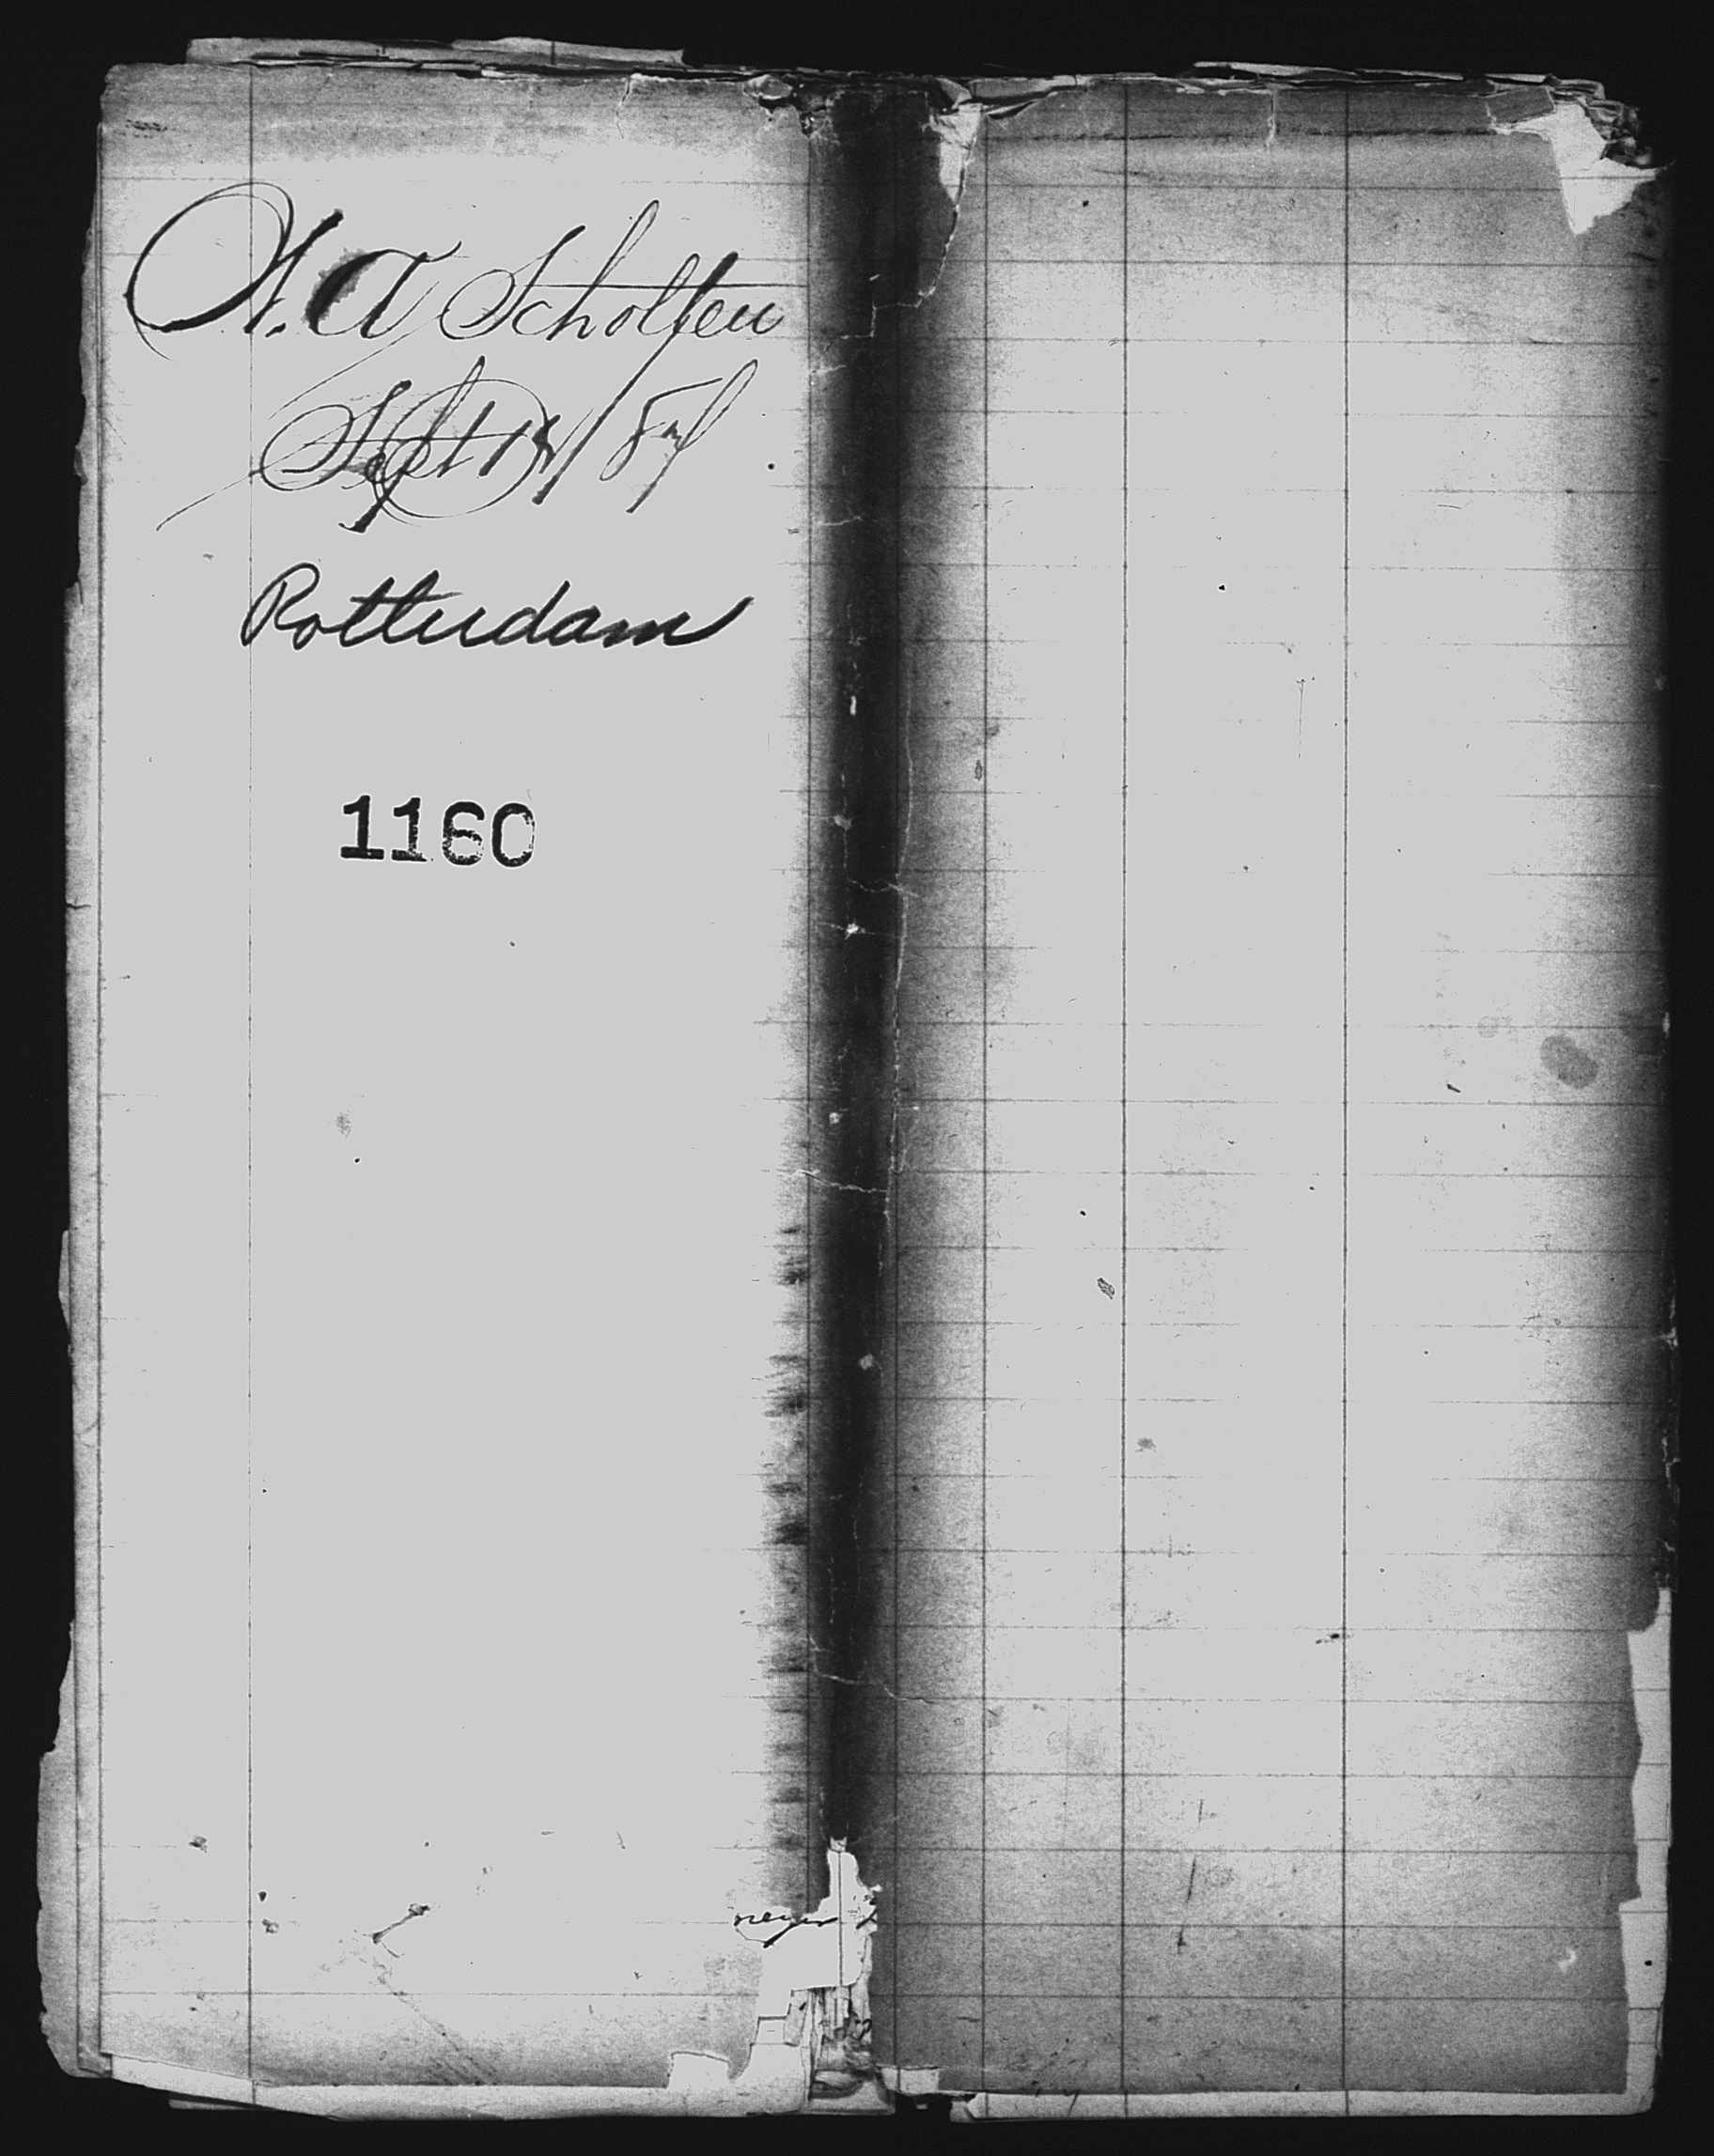 W. A Scholten
Sept 14/87
Rotterdam
1160